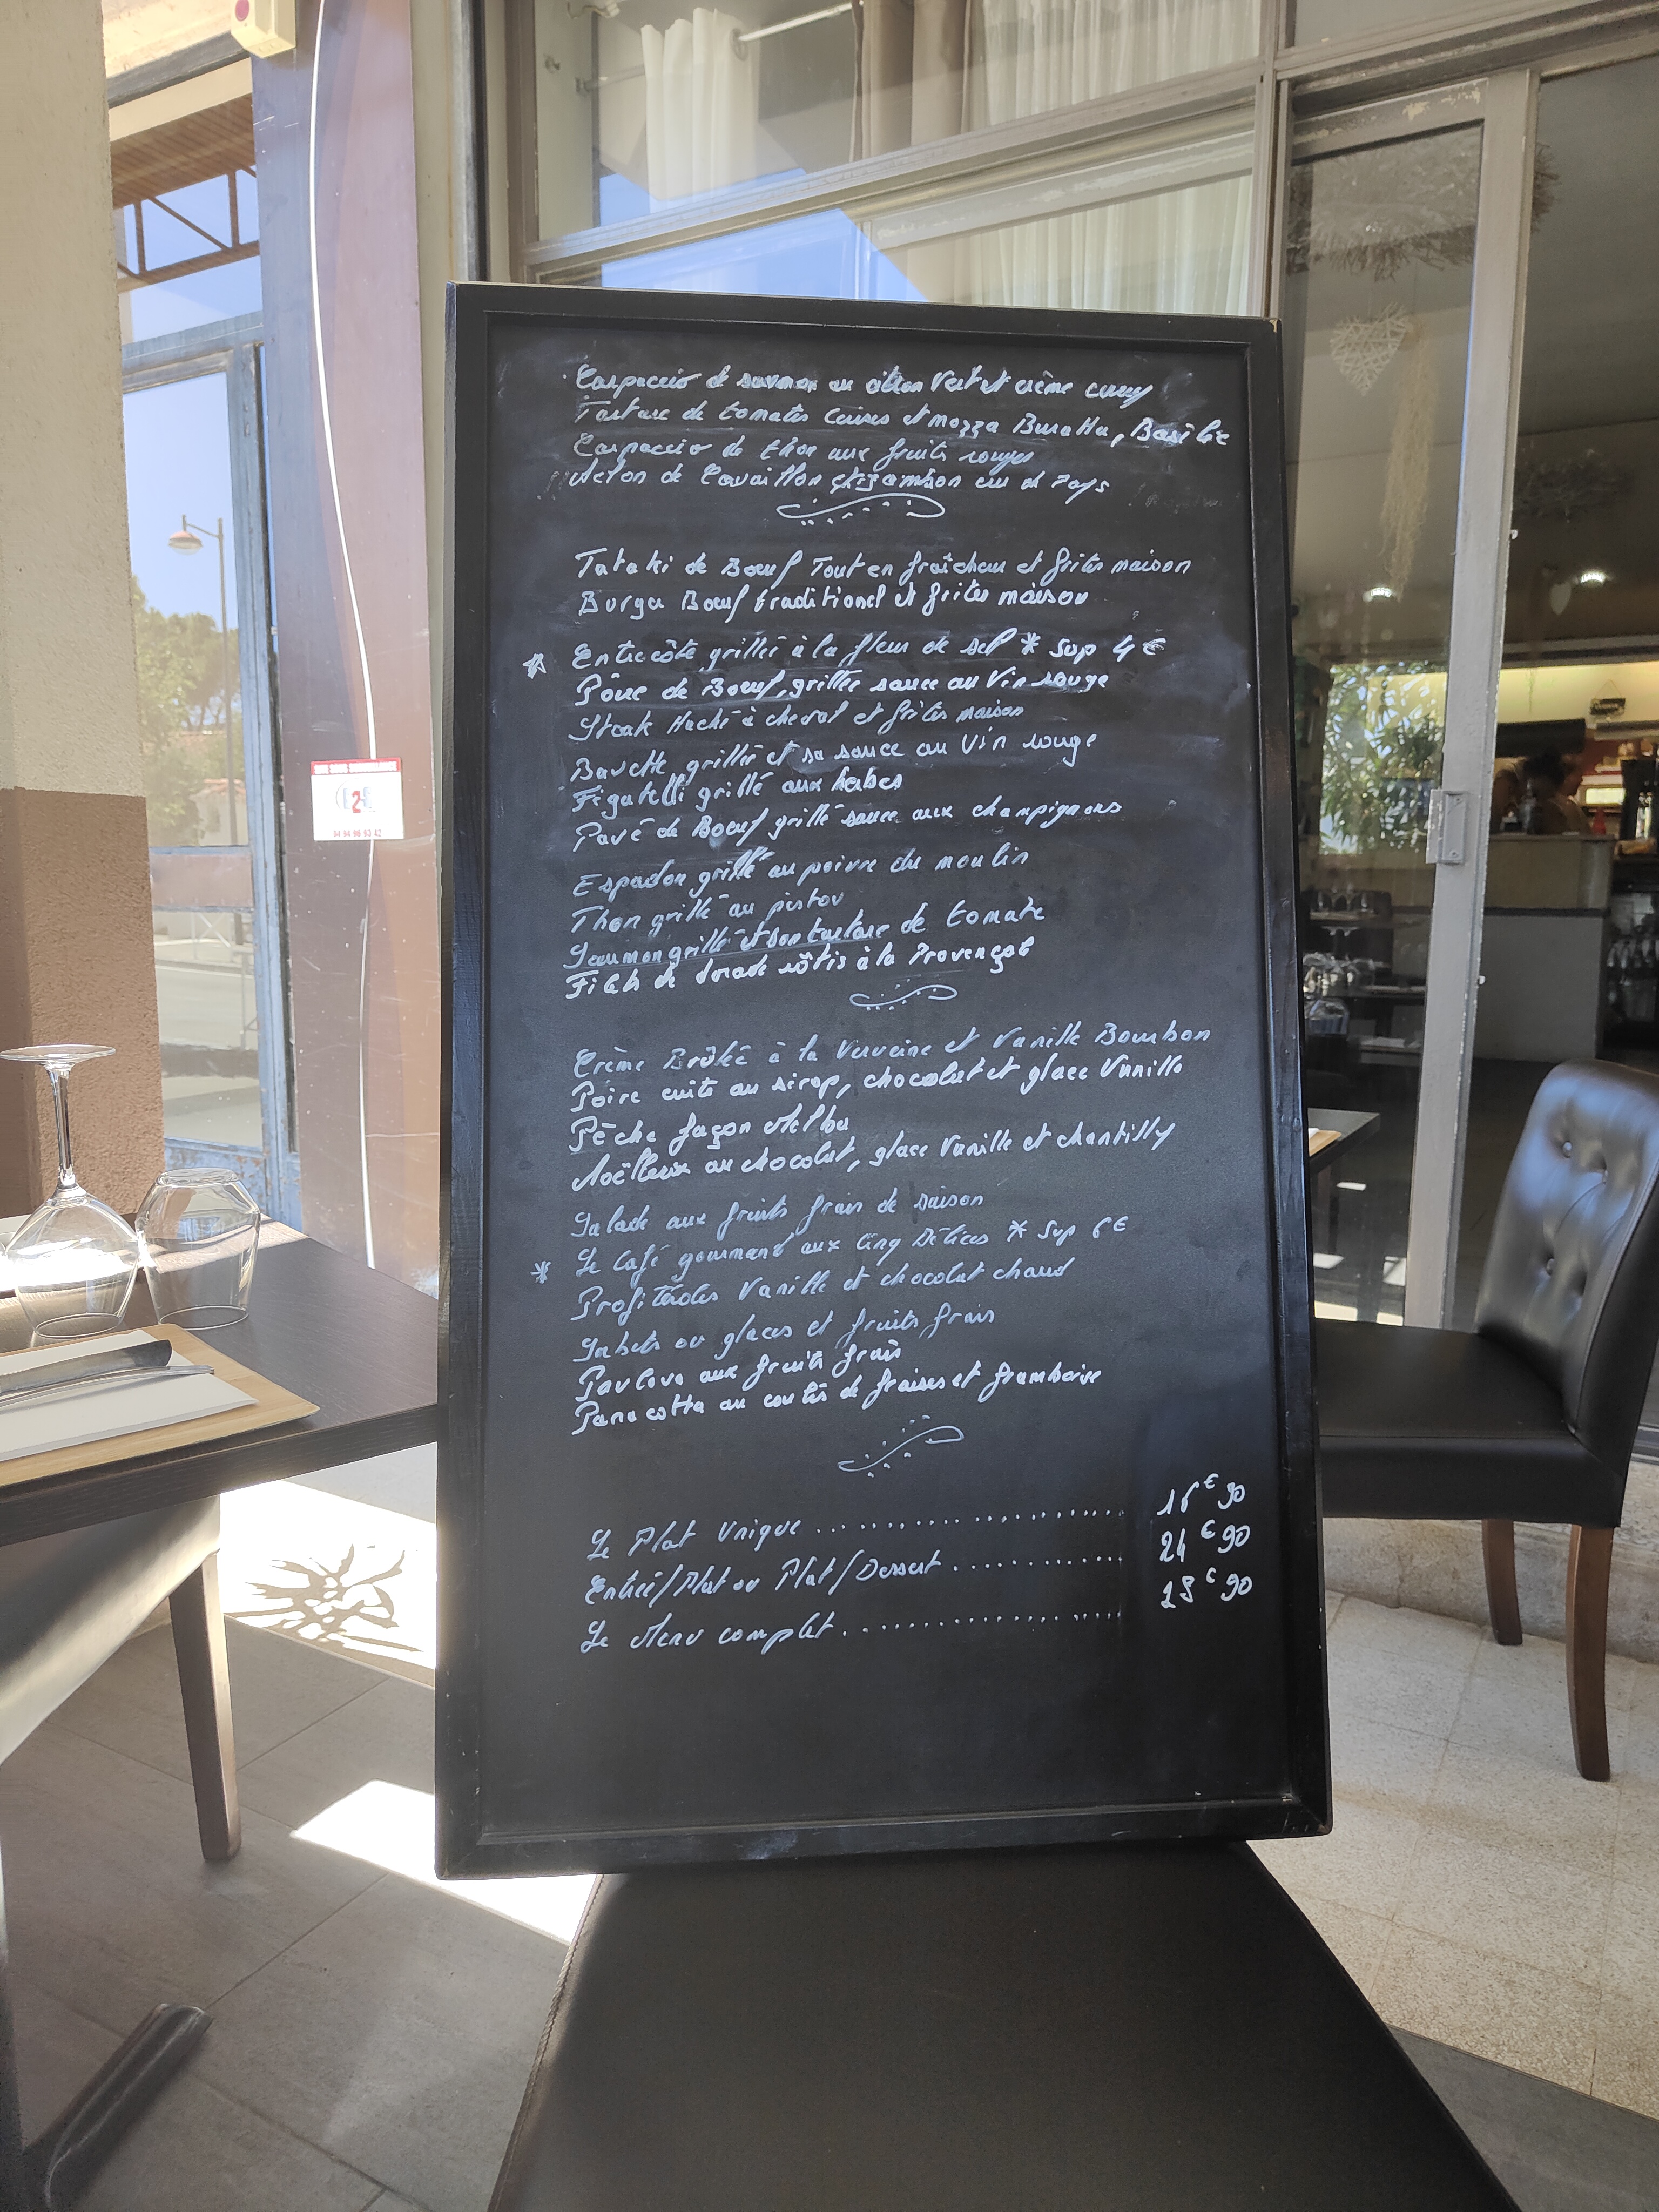 Carpaccio de saumon au citron vert et crème curry
Tartare de tomates et mozza Buratta, Basilic
Carpaccio de thon aux fruits rouges
Melon de Cavaillon et jambon cru de Pays
Tataki de Boeuf Tout en fraîcheur et frites maison
Burger Boeuf traditionel et frites maison
Entrecôte grillée à la fleur de sel * sup 4 €
de Boeuf, grillée sauce au Vin rouge
Steak Haché à cheval et frites maison
Bavette grillée et sa sauce au Vin rouge
Figatelli grillé aux herbes
Pavé de Boeuf grillé sauce aux champignons
Espadon grillé au poivre du moulin
Thon grillé au pistou
Saumon grillé et son tartare de tomate
Filets de dorade rôtis à la Provençale
Crème Brûlée à la Verveine et Vanille Bourbon
Poire cuite au sirop, chocolat et glace Vanille
Pêche façon Melba
Moëlleux au chocolat, glace Vanille et chantilly
Salade aux fruits frais de saison
* Le Café gourmand aux Cinq Délices * Sup 6 €
Profiteroles Vanille et chocolat chaud
Sorbets ou glaces et fruits frais
Pavlova aux fruits frais
Panacotta au coulis de fraises et framboise
Le Plat Unique .......................... 
Entrée/Plat ou Plat/Dessert ............. 24 € 90
Le Menu complet ......................... 28 € 90